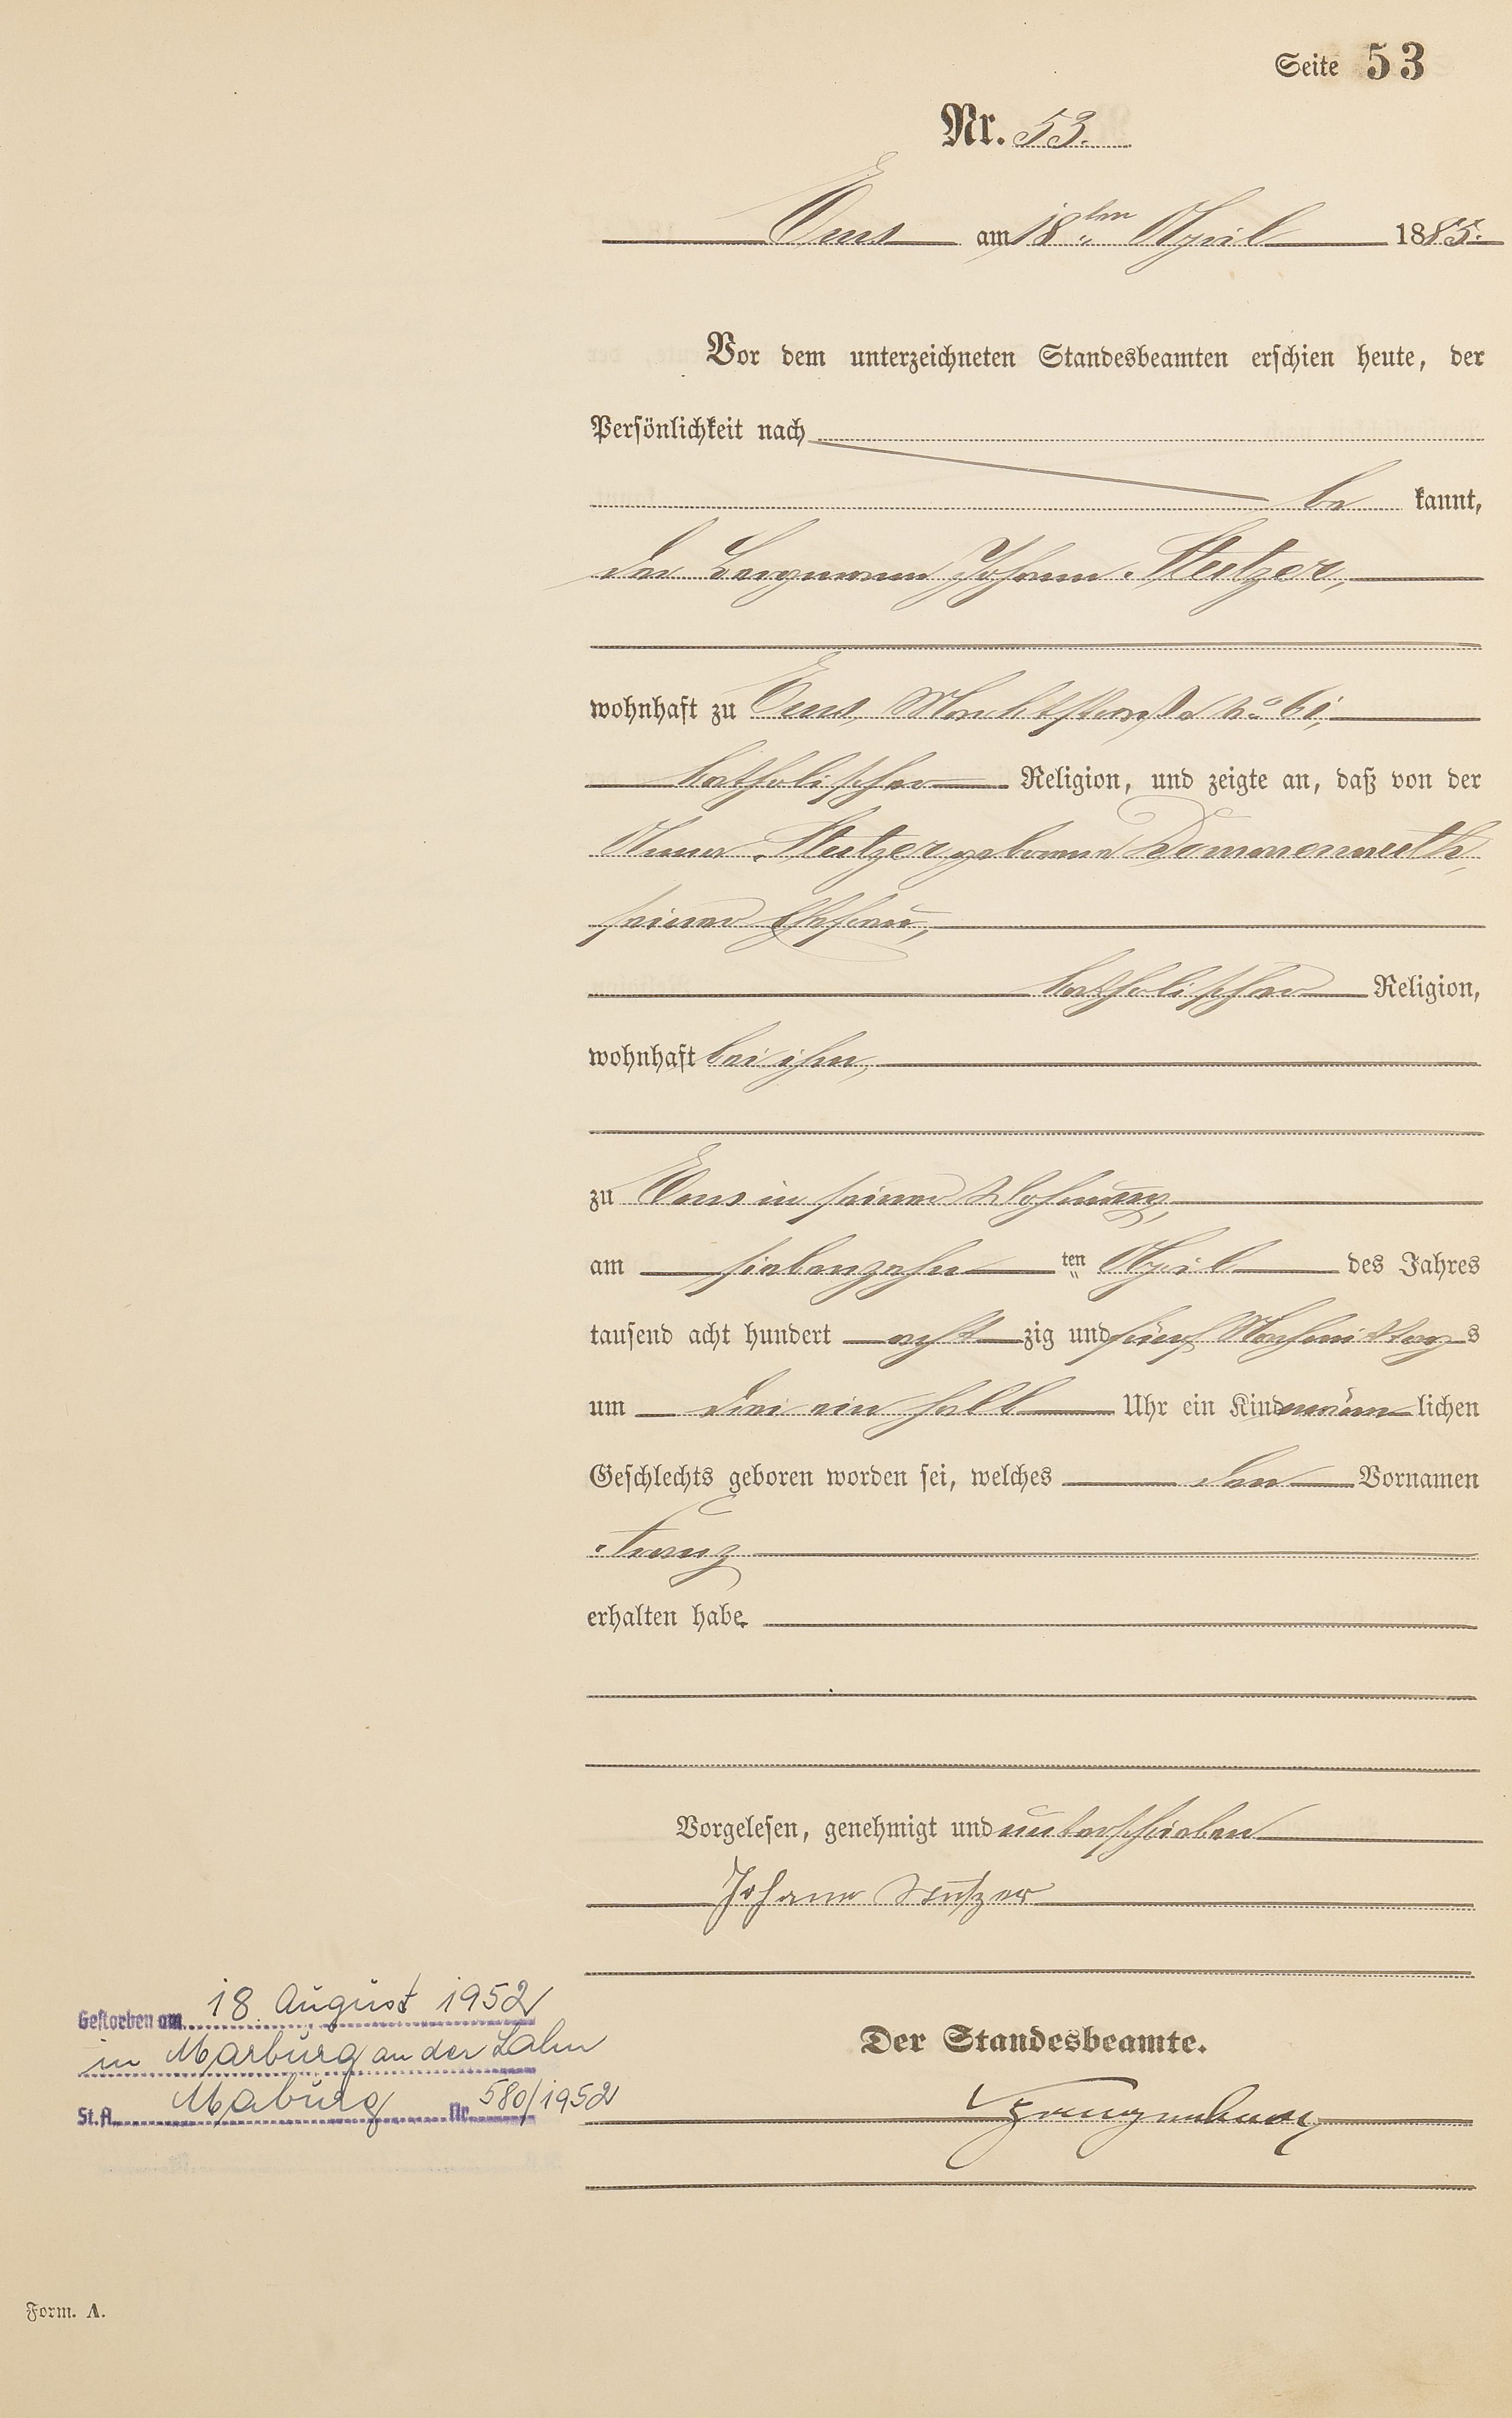 Seite 53
Nr. 53.
Ems am 18ten April 1885.
Vor dem unterzeichneten Standesbeamten erschien heute, der
Persönlichkeit nach
be kannt,
der Bergmann Johann Stutzer,
wohnhaft zu Ems, Marktstraße No 61,
katholischer Religion, und zeigte an, daß von der
Anna Stutzer geborene Dommermuth,
seiner Ehefrau,
katholischer Religion,
wohnhaft bei ihm,
zu Ems in seiner Wohnung,
am siebenzehn ten April des Jahres
tausend acht hundert acht zig und fünf Nachmittag s
um drei ein halb Uhr ein Kind männ lichen
Geschlechts geboren worden sei, welches den Vornamen
Franz
erhalten habe.
Vorgelesen, genehmigt und unterschrieben
Johann Stutzer
Der Standesbeamte.
Gestorben am 18 August 1952
in Marburg an der Lahn
St.A. Maburg Nr. 580/1952
Form. A.